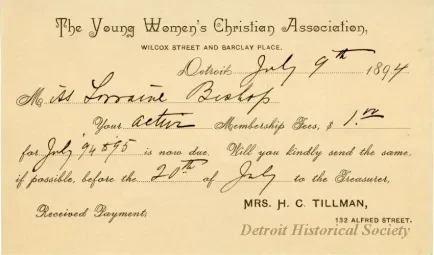 The Young Women's Christian Association,
WILCOX STREET AND BARCLAY PLACE.
Detroit July 9th 1894
Miss Lorraine Bishop
Your active Membership Fees, $ 1.00
for July '94 & 95 is now due. Will you kindly send the same,
if possible, before the 20th of July to the Treasurer,
MRS. H. C. TILLMAN,
Received Payment,
132 ALFRED STREET.
Detroit Historical Society